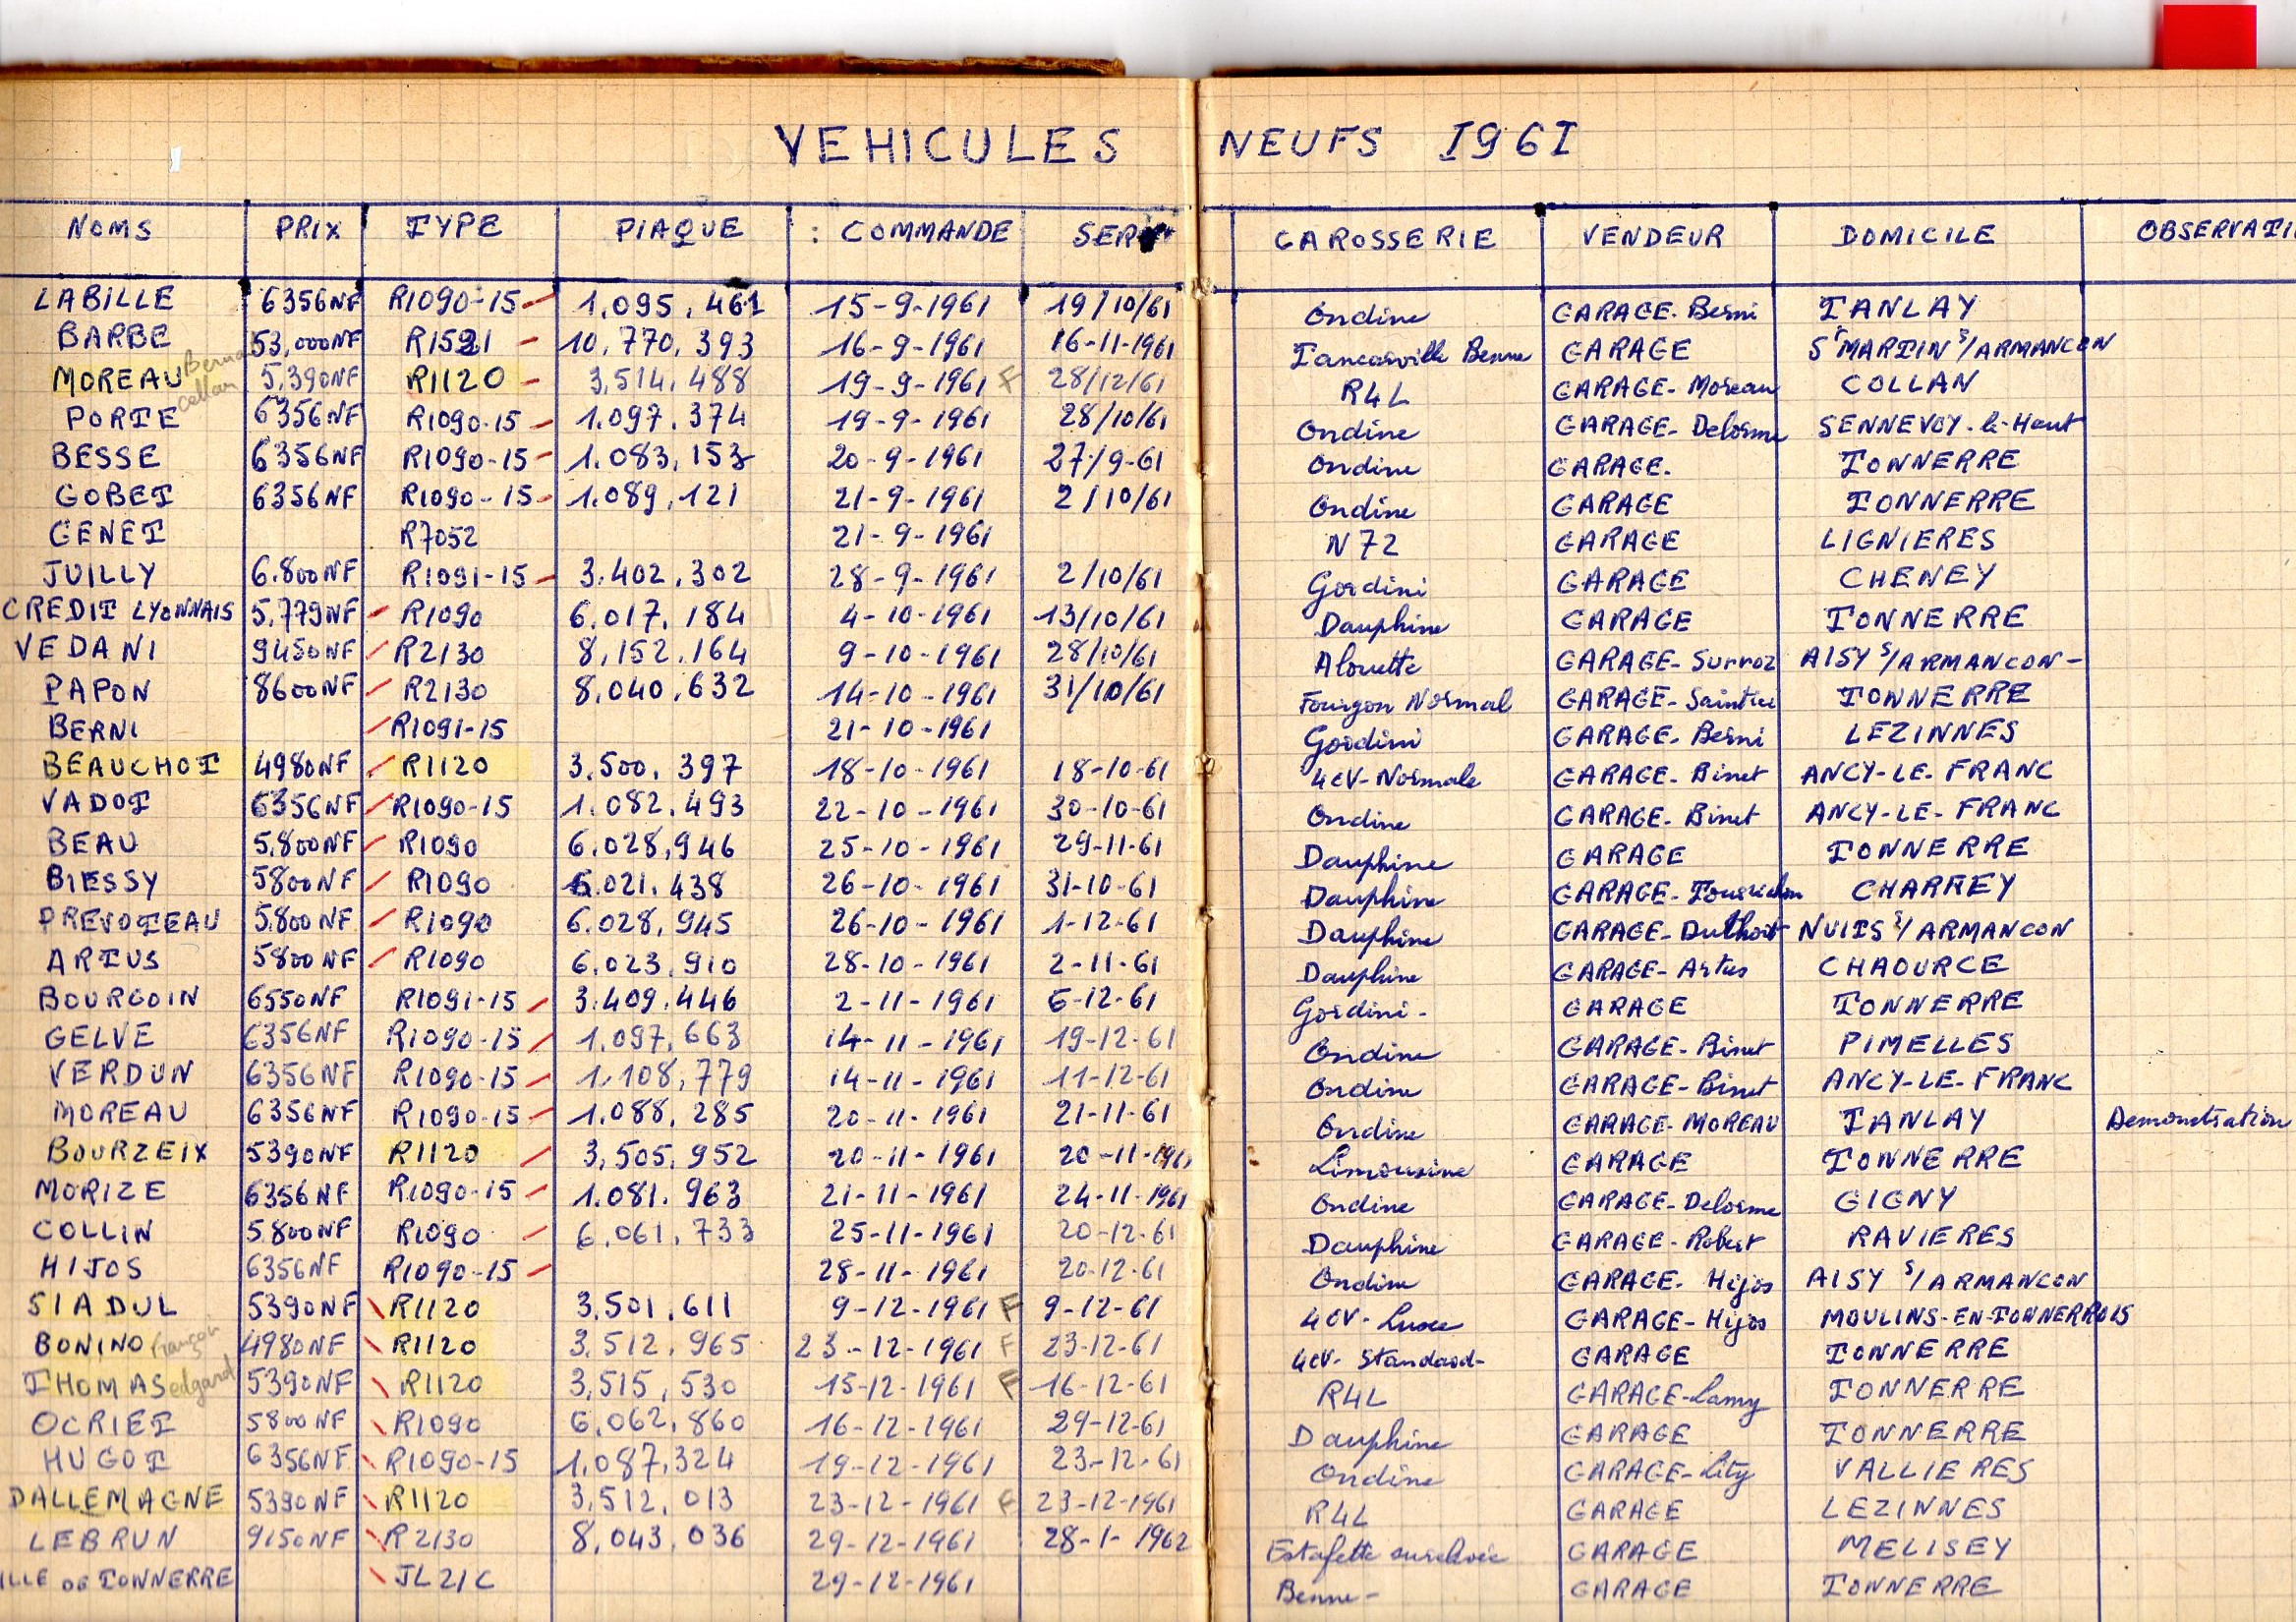 VEHICULES NEUFS 1961
NOMS PRIX TYPE PLAQUE : COMMANDE CAROSSERIE VENDEUR DOMICILE OBSERVATI
LABILLE 6356NF R1090-15 1.095.461 15-9-1961 19/10/61 Ondine GARAGE-Berni TANLAY
BARBE 53,000NF R1521 10.770.393 16-9-1961 16-11-1961 Tancarville Benne GARAGE St MARTIN s/ARMANCON
MOREAU Collan 5.390NF R1120 3,514.488 19-9-1961 F 28/12/61 R4L GARAGE-Moreau COLLAN
PORTE 6356NF R1090-15 1.097.374 19-9-1961 28/10/61 Ondine GARAGE-Delorme SENNEVOY-le-Haut
BESSE 6356NF R1090-15 1.083.153 20-9-1961 27/9-61 Ondine GARAGE. TONNERRE
GOBET 6356NF R1090-15 1.089.121 21-9-1961 2/10/61 Ondine GARAGE TONNERRE
GENET R7052 21-9-1961 N72 GARAGE LIGNIERES
JUILLY 6.800NF R1091-15 3.402.302 28-9-1961 2/10/61 Gordini GARAGE CHENEY
CREDIT LYONNAIS 5.779NF R1090 6.017.184 4-10-1961 13/10/61 Dauphine GARAGE TONNERRE
VEDANI 9450NF R2130 8,152.164 9-10-1961 28/10/61 Alouette GARAGE-Surroz AISY s/ARMANCON-
PAPON 8600NF R2130 8.040.632 14-10-1961 31/10/61 Fourgon Normal GARAGE TONNERRE
BERNI R1091-15 21-10-1961 Gordini GARAGE-Berni LEZINNES
BEAUCHOT 4980NF R1120 3.500.397 18-10-1961 18-10-61 4CV-Normale GARAGE-Binet ANCY-LE-FRANC
VADOT 6356NF R1090-15 1.082.493 22-10-1961 30-10-61 Ondine GARAGE-Binet ANCY-LE-FRANC
BEAU 5.800NF R1090 6.028,946 25-10-1961 29-11-61 Dauphine GARAGE TONNERRE
BIESSY 5800NF R1090 6.021.438 26-10-1961 31-10-61 Dauphine GARAGE CHARREY
PREVOTEAU 5.800NF R1090 6.028,945 26-10-1961 1-12-61 Dauphine GARAGE-Duthoit NUITS s/ARMANCON
ARTUS 5800NF R1090 6.023.910 28-10-1961 2-11-61 Dauphine GARAGE-Artus CHAOURCE
BOURGOIN 6550NF R1091-15 3.409.446 2-11-1961 6-12-61 Gordini- GARAGE TONNERRE
GELVE 6356NF R1090-15 1.097.663 14-11-1961 19-12-61 Ondine GARAGE-Binet PIMELLES
VERDUN 6356NF R1090-15 1.108,779 14-11-1961 11-12-61 Ondine GARAGE-Binet ANCY-LE-FRANC
MOREAU 6356NF R1090-15 1.088.285 20-11-1961 21-11-61 Ondine GARAGE-MOREAU TANLAY Demonstration
BOURZEIX 5390NF R1120 3,505.952 20-11-1961 20-11-1961 Limousine GARAGE TONNERRE
MORIZE 6356NF R1090-15 1.081.963 21-11-1961 24-11-1961 Ondine GARAGE-Delorme GIGNY
COLLIN 5800NF R1090 6,061.733 25-11-1961 20-12-61 Dauphine GARAGE-Robert RAVIERES
HIJOS 6356NF R1090-15 28-11-1961 20-12-61 Ondine GARAGE-Hijos AISY s/ARMANCON
SIADUL 5390NF R1120 3.501.611 9-12-1961 F 9-12-61 4CV-Luxe GARAGE-Hijos MOULINS-EN-TONNERROIS
BONINO François 4980NF R1120 3.512.965 23-12-1961 F 23-12-61 4CV-Standard- GARAGE TONNERRE
THOMAS edgard 5390NF R1120 3,515,530 15-12-1961 F 16-12-61 R4L GARAGE-Lamy TONNERRE
OCRIET 5800NF R1090 6,062,860 16-12-1961 29-12-61 Dauphine GARAGE TONNERRE
HUGOT 6356NF R1090-15 1.087.324 19-12-1961 23-12-61 Ondine GARAGE-Lity VALLIERES
DALLEMAGNE 5390NF R1120 3,512,013 23-12-1961 F 23-12-1961 R4L GARAGE LEZINNES
LEBRUN 9150NF R2130 8,043,036 29-12-1961 28-1-1962 Estafette GARAGE MELISEY
ILLE DE TONNERRE JL21C 29-12-1961 Benne- GARAGE TONNERRE